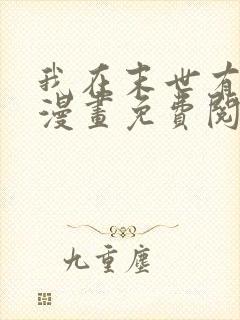 我在末世有
漫畫免費閱
九重塵